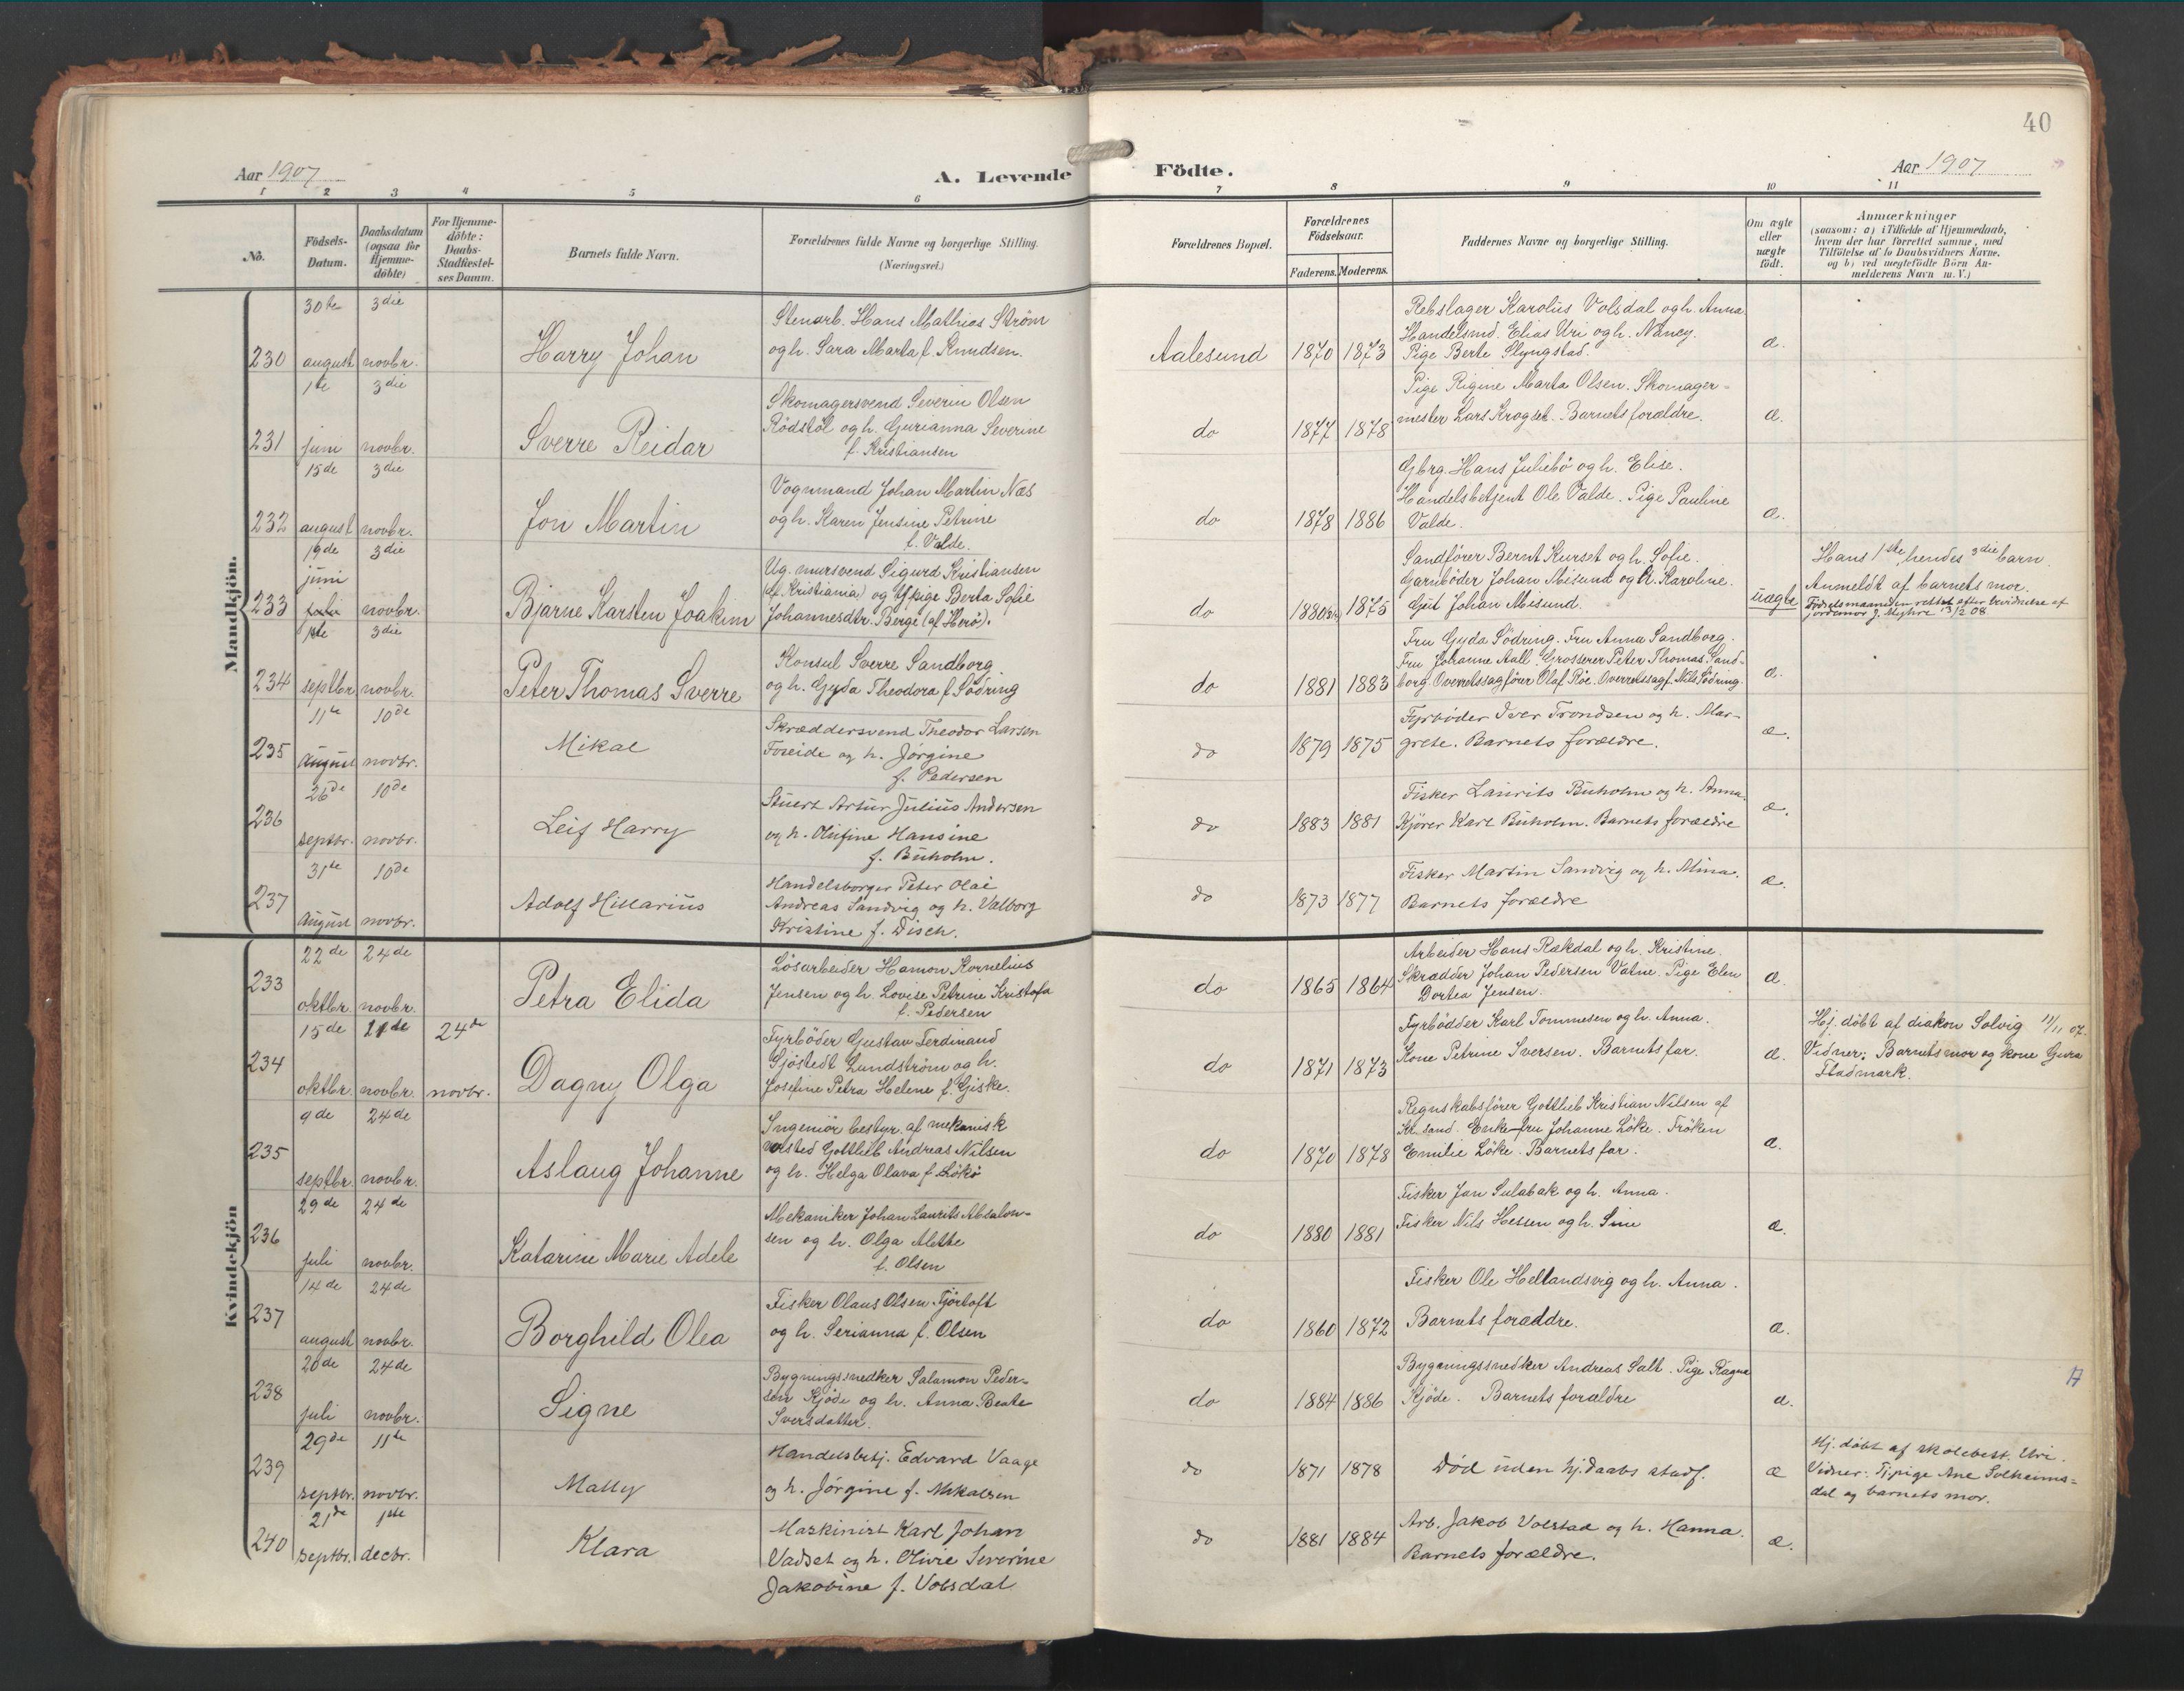 40
Aar 1907
A. Levende Födte.
Aar 1907
1 2 3 4 5 6 7 8 9 10 11
No.
Födsels-Datum.
Daabsdatum (ogsaa for Hjemme-döbte)
For Hjemme-döbte: Daabs-Stadfæstel-ses Datum.
Barnets fulde Navn.
Forældrenes fulde Navne og borgerlige Stilling. (Næringsvei.)
Forældrenes Bopæl.
Forældrenes Födselsaar.
Faderens. Moderens.
Faddernes Navne og borgerlige Stilling.
Om ægte eller uægte födt.
Anmærkninger
(saasom: a) i Tilfælde af Hjemmedaab,
hvem der har forrettet samme, med
Tilföielse af to Daabsvidners Navne.
og b) ved uægtefödte Börn An-
melderens Navn m.V.)
Mandkjön.
230 30te august 3die novbr.
Harry Johan
Stenarb. Hans Mathias Ström
og h. Sara Marta f. Knudsen.
Aalesund 1870 1873
Rebslager Karolus Volsdal og h. Anna.
Handelsmd. Elias Uri og h. Nancy.
Pige Berte Slyngstad.
æ.
231 1te juni 3die novbr.
Sverre Reidar
Skomagersvend Severin Olsen
Rödstöl og h. Gurianna Severine
f. Kristiansen
do 1877 1878
Pige Rigine Marta Olsen. Skomager-
mester Lars Krogset. Barnets forældre.
æ.
232 15de august 3die novbr.
Jon Martin
Vognmand Johan Martin Næs
og h. Karen Jensine Petrine
f. Valde.
do 1878 1886
Gbrg. Hans Juliebö og h. Elise.
Handelsbetjent Ole Valde. Pige Pauline
Valde.
æ.
233 19de juni 3die novbr.
Bjarne Karsten Joakim
Ug. mursvend Sigurd Kristiansen
(af Kristiania) og tj.pige Berta Sofie
Johannesdtr. Berge (af Herö).
do 1880 1875
Sandförer Bernt Kurset og h. Sofie.
Garnböder Johan Misund og h. Karoline.
Gut Johan Misund.
uægte
Hans 1ste, hendes 3die barn.
Anmeldt af barnets mor.
Födselsmaaneden rettet efter bevidnelse af
jordemor J. Myhre 13/2 08
234 1ste septbr 3die novbr.
Peter Thomas Sverre
Konsul Sverre Sandborg
og h. Gyda Theodora f. Södring
do 1881 1883
Fru Gyda Södring. Fru Anna Sandborg.
Fru Johanne Aall. Grosserer Peter Thomas Sand-
borg. Overretssagförer Olaf Röe. Overretssagf. Nils Södring.
æ.
235 11te august 10de novbr.
Mikal
Skræddersvend Theodor Larsen
Foseide og h. Jörgine
f. Pedersen
do 1879 1875
Fyrböder Iver Trondsen og h. Mar-
grete. Barnets forældre.
æ.
236 26de septbr. 10de novbr.
Leif Harry
Stuert Artur Julius Andersen
og h. Olufine Hansine
f. Buholm.
do 1883 1881
Fisker Laurits Buholm og h. Anna.
Kjörer Karl Buholm. Barnets forældre
æ.
237 31te august 10de novbr.
Adolf Hillarius
Handelsborger Peter Olai
Andreas Sandvig og h. Valborg
Kristine f. Disch.
do 1873 1877
Fisker Martin Sandvig og h. Mina.
Barnets forældre
æ.
Kvindekjön
233 22de oktbr. 24de novbr.
Petra Elida
Lösarbeider Hamon Kornelius
Jensen og h. Lovise Petrine Kristofa
f. Pedersen
do 1865 1864
Arbeider Hans Rækdal og h. Kristine.
Skrædder Johan Pedersen Vatne. Pige Elen
Dortea Jensen.
æ.
234 15de oktbr. 11te novbr. 24de novbr.
Dagny Olga
Fyrböder Gustav Ferdinand
Sjöstedt Lundström og h.
Josefine Petra Helene f. Giske.
do 1871 1873
Fyrbödder Karl Tommesen og h. Anna.
Kone Petrine Iversen. Barnets far.
æ.
Hj. döbt af diakon Solvig 11/11 07.
Vidner: Barnets mor og kone Gura
Fladmark.
235 9de septbr. 24de novbr.
Aslaug Johanne
Ingeniör bestyr. af mekanisk
verksted Gottlieb Andreas Nilsen
og h. Helga Olava f. Löke
do 1870 1878
Regnskabsförer Gottlieb Kristian Nilsen af
Kr.sand. Enke-fru Johanne Löke. Fröken
Emilie Löke. Barnets far.
æ.
236 29de juli 24de novbr.
Katarine Marie Adele
Mekaniker Johan Laurits Absalon-
sen og h. Olga Alette
f. Olsen
do 1880 1881
Fisker Jan Sulabak og h. Anna.
Fisker Nils Hessen og h. Sine
æ.
237 14de august 24de novbr.
Borghild Olea
Fisker Olaus Olsen Fjörtoft
og h. Serianna f. Olsen
do 1860 1872
Fisker Ole Hellandsvig og h. Anna.
Barnets forældre.
æ.
238 20de juli 24de novbr.
Signe
Bygningssnedker Salamon Peder-
sen Kjöde og h. Anna Beate
Iversdatter.
do 1884 1886
Bygningssnedker Andreas Salt. Pige Ragna
Kjöde. Barnets forældre
æ.
17
239 29de septbr. 11te novbr.
Mally
Handelsbetj. Edvard Vaage
og h. Jörgine f. Mikalsen
do 1871 1878
Död uden hj.daabs stadf.
æ
Hj. döbt af skolebest. Uri.
Vidner: Tj.pige Ane Solheims-
dal og barnets mor.
240 21de septbr. 1ste decbr.
Klara
Maskinist Karl Johan
Vadset og h. Olivie Severine
Jakobine f. Volsdal
do 1881 1884
Arb. Jakob Volstad og h. Hanna.
Barnets forældre.
æ.